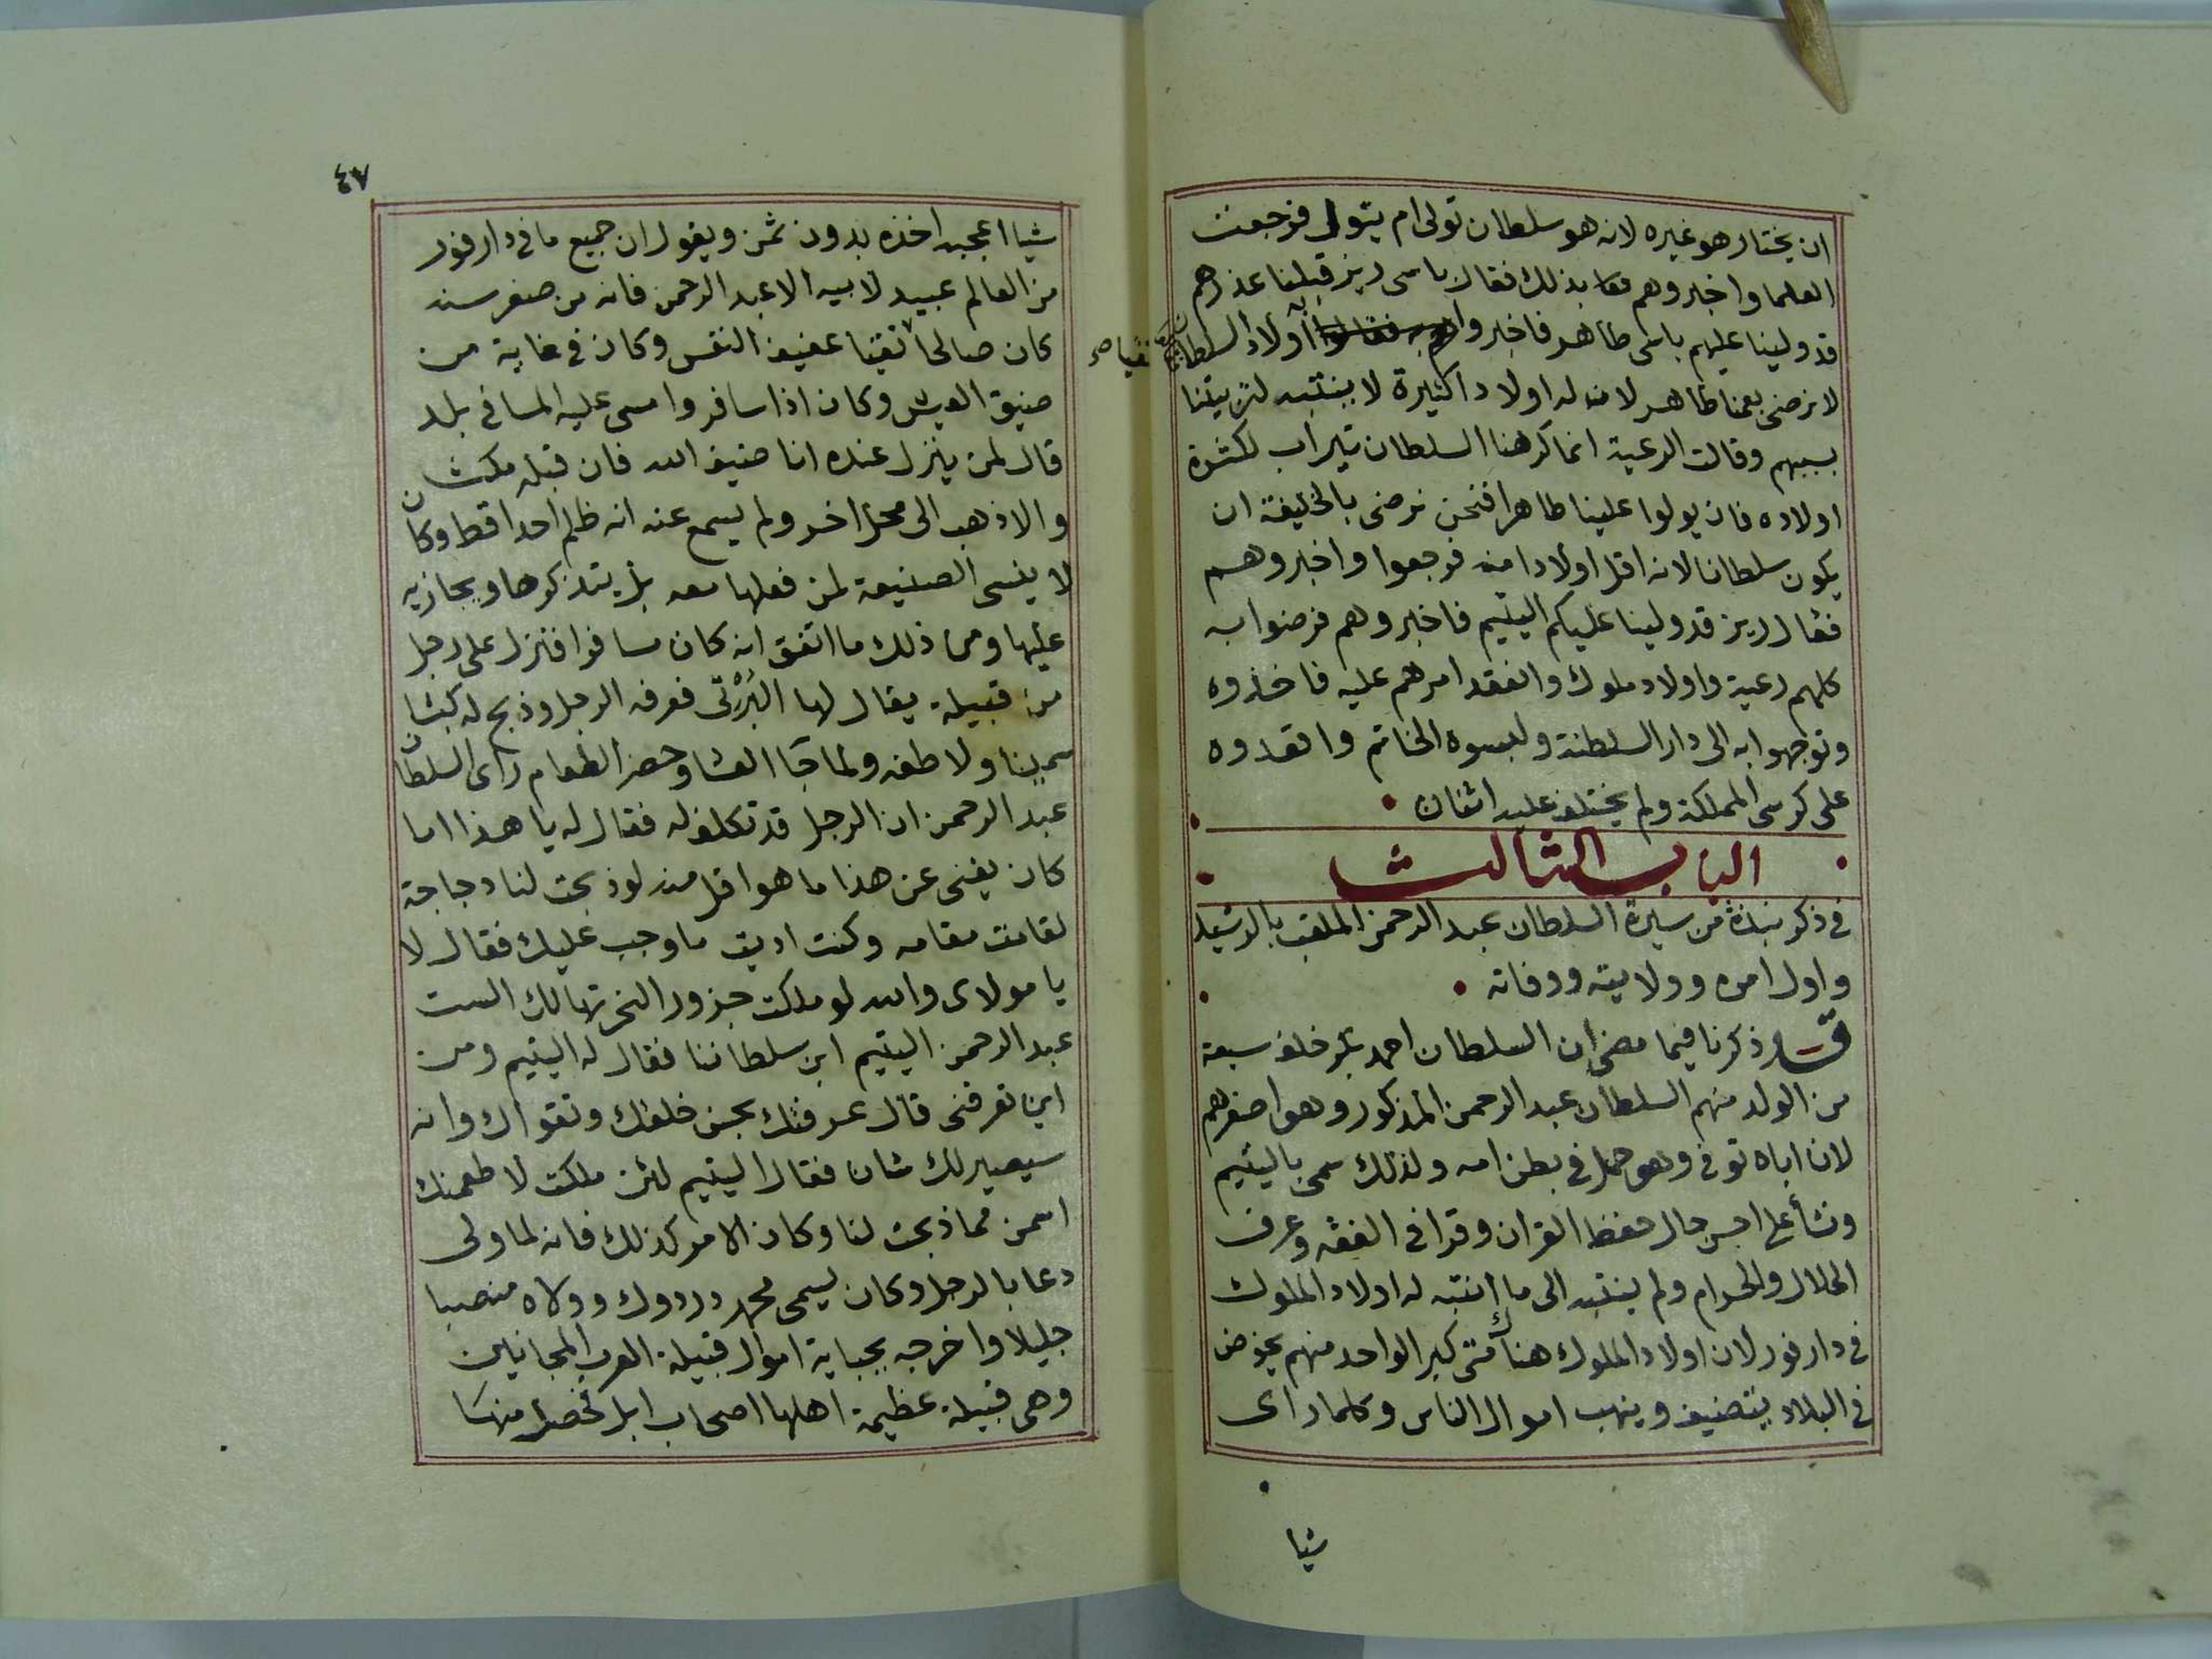 ان يختار هو غيره لانه هو سلطان تولى ام يتولى فرجعت
العلما واخبروهم بذلك فقال باسى ريز قبلنا عذرهم
قد ولينا عليهم باسى طاهر فاخبروا به اولاد السلطان
لا نرضى بعمنا طاهر لانه له اولادا كثيرة لا ينتبه لتربيتنا
بسببهم وقالت الرعية انما كرهنا السلطان تيراب لكثرة
اولاده فان يولوا علينا طاهرا فنحن نرضى بالخليفة ان
يكون سلطانا لانه اقل اولادا منه فرجعوا واخبروهم
فقال ريز قد ولينا عليكم اليتيم فاخبروهم فرضوا به
كلهم رعية واولاد ملوك وانعقد امرهم عليه فاخذوه
وتوجهوا به الى دار السلطنة ولبسوه الخاتم واقعدوه
على كرسى المملكة ولم يختلف عليه اثنان
الباب الثالث
فى ذكر نبذة من سيرة السلطان عبد الرحمن الملقب بالرشيد
واول امره وولايته ووفاته
قد ذكرنا فيما مضى ان السلطان احمد بكر خلف سبعة
من الولد منهم السلطان عبد الرحمن المذكور وهو اصغرهم
لان اباه توفى وهو حمل فى بطن امه ولذلك سمى باليتيم
ونشأ على احسن حال حفظ القران وقرا فى الفقه وعرف
الحلال والحرام ولم ينتبه الى ما انتبه له اولاد الملوك
فى دار فور لان اولاد الملوك هناك متى كبر الواحد منهم يخوض
فى البلاد يتضيف وينهب اموال الناس وكلما راى
شيا
٤٧
شيا اعجبه اخذه بدون ثمن ويقول ان جميع ما فى دار فور
من العالم عبيد لابيه الا عبد الرحمن فانه من صغر سنه
كان صالحا تقيا عفيف النفس وكان فى غاية من
تقيا صح
ضيق العيش وكان اذا سافر وامسى عليه المسا فى بلد
قال لمن ينزل عنده انا ضيف الله فان قبله مكث
والا ذهب الى محل اخر ولم يسمع عنه انه ظلم احدا قط وكان
لا ينسى الصنيعة لمن فعلها معه بل يتذكرها ويجازيه
عليها ومن ذلك ما اتفق انه كان مسافرا فنزل على رجل
من قبيلة يقال لها البرتى فعرفه الرجل وذبح له كبشا
سمينا ولاطفه ولما جا العشا وحضر الطعام راى السلطان
عبد الرحمن ان الرجل قد تكلف له فقال له يا هذا اما
كان يغنى عن هذا ما هو اقل منه لو ذبحت لنا دجاجة
لقامت مقامه وكنت اديت ما وجب عليك فقال لا
يا مولاى والله لو ملكت جزور النحرتها لك الست
عبد الرحمن اليتيم ابن سلطاننا فقال له اليتيم ومن
اين تعرفنى قال عرفتك بحسن خلقك وتقواك وانه
سيصير لك شان فقال اليتيم لئن ملكت لاطعمنك
اسمن مما ذبحت لنا وكان الامر كذلك فانه لما ولى
دعا بالرجل وكان يسمى محمد دردوك وولاه منصبا
جليلا واخرجه بجباية اموال قبيلة العرب المجانين
وهى قبيلة عظيمة اهلها اصحاب ابل تحصل منها